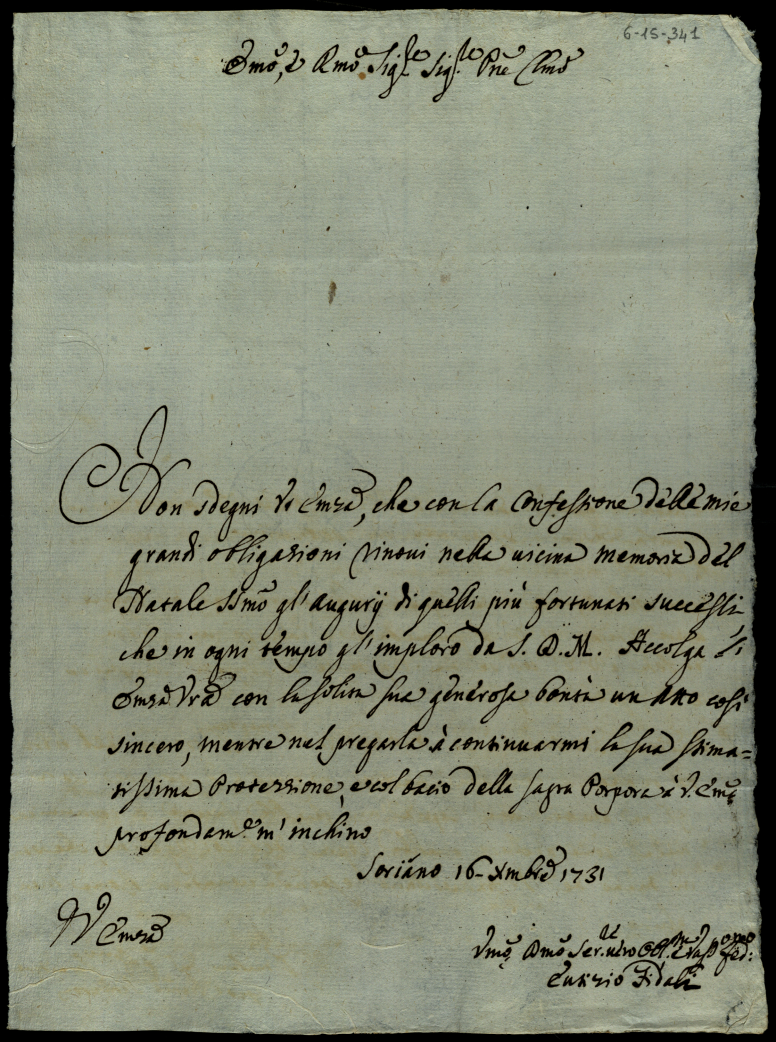 6-15-341
Emo, e Rmo Sig.re Sig.re Pne Clmo
Non sdegni V. Emza, che con la Confessione delle mie
grandi obbligazioni rinovi nella vicina memoria del
Natale SSmo gl'Augurij di quelli più fortunati successi,
che in ogni tempo gl'imploro da S. D. M. Accolga l'
Emza Vra con la solita sua generosa bontà un Atto così
sincero, mentre nel pregarla à continuarmi la sua stima=
tissima Protezzione, e col bacio della sagra Porpora à V. Emza
profondam.e m'inchino
Soriano 16 Xmbre 1731
V Emza
Vmo, Dmo Ser.
Eutizio Fidali